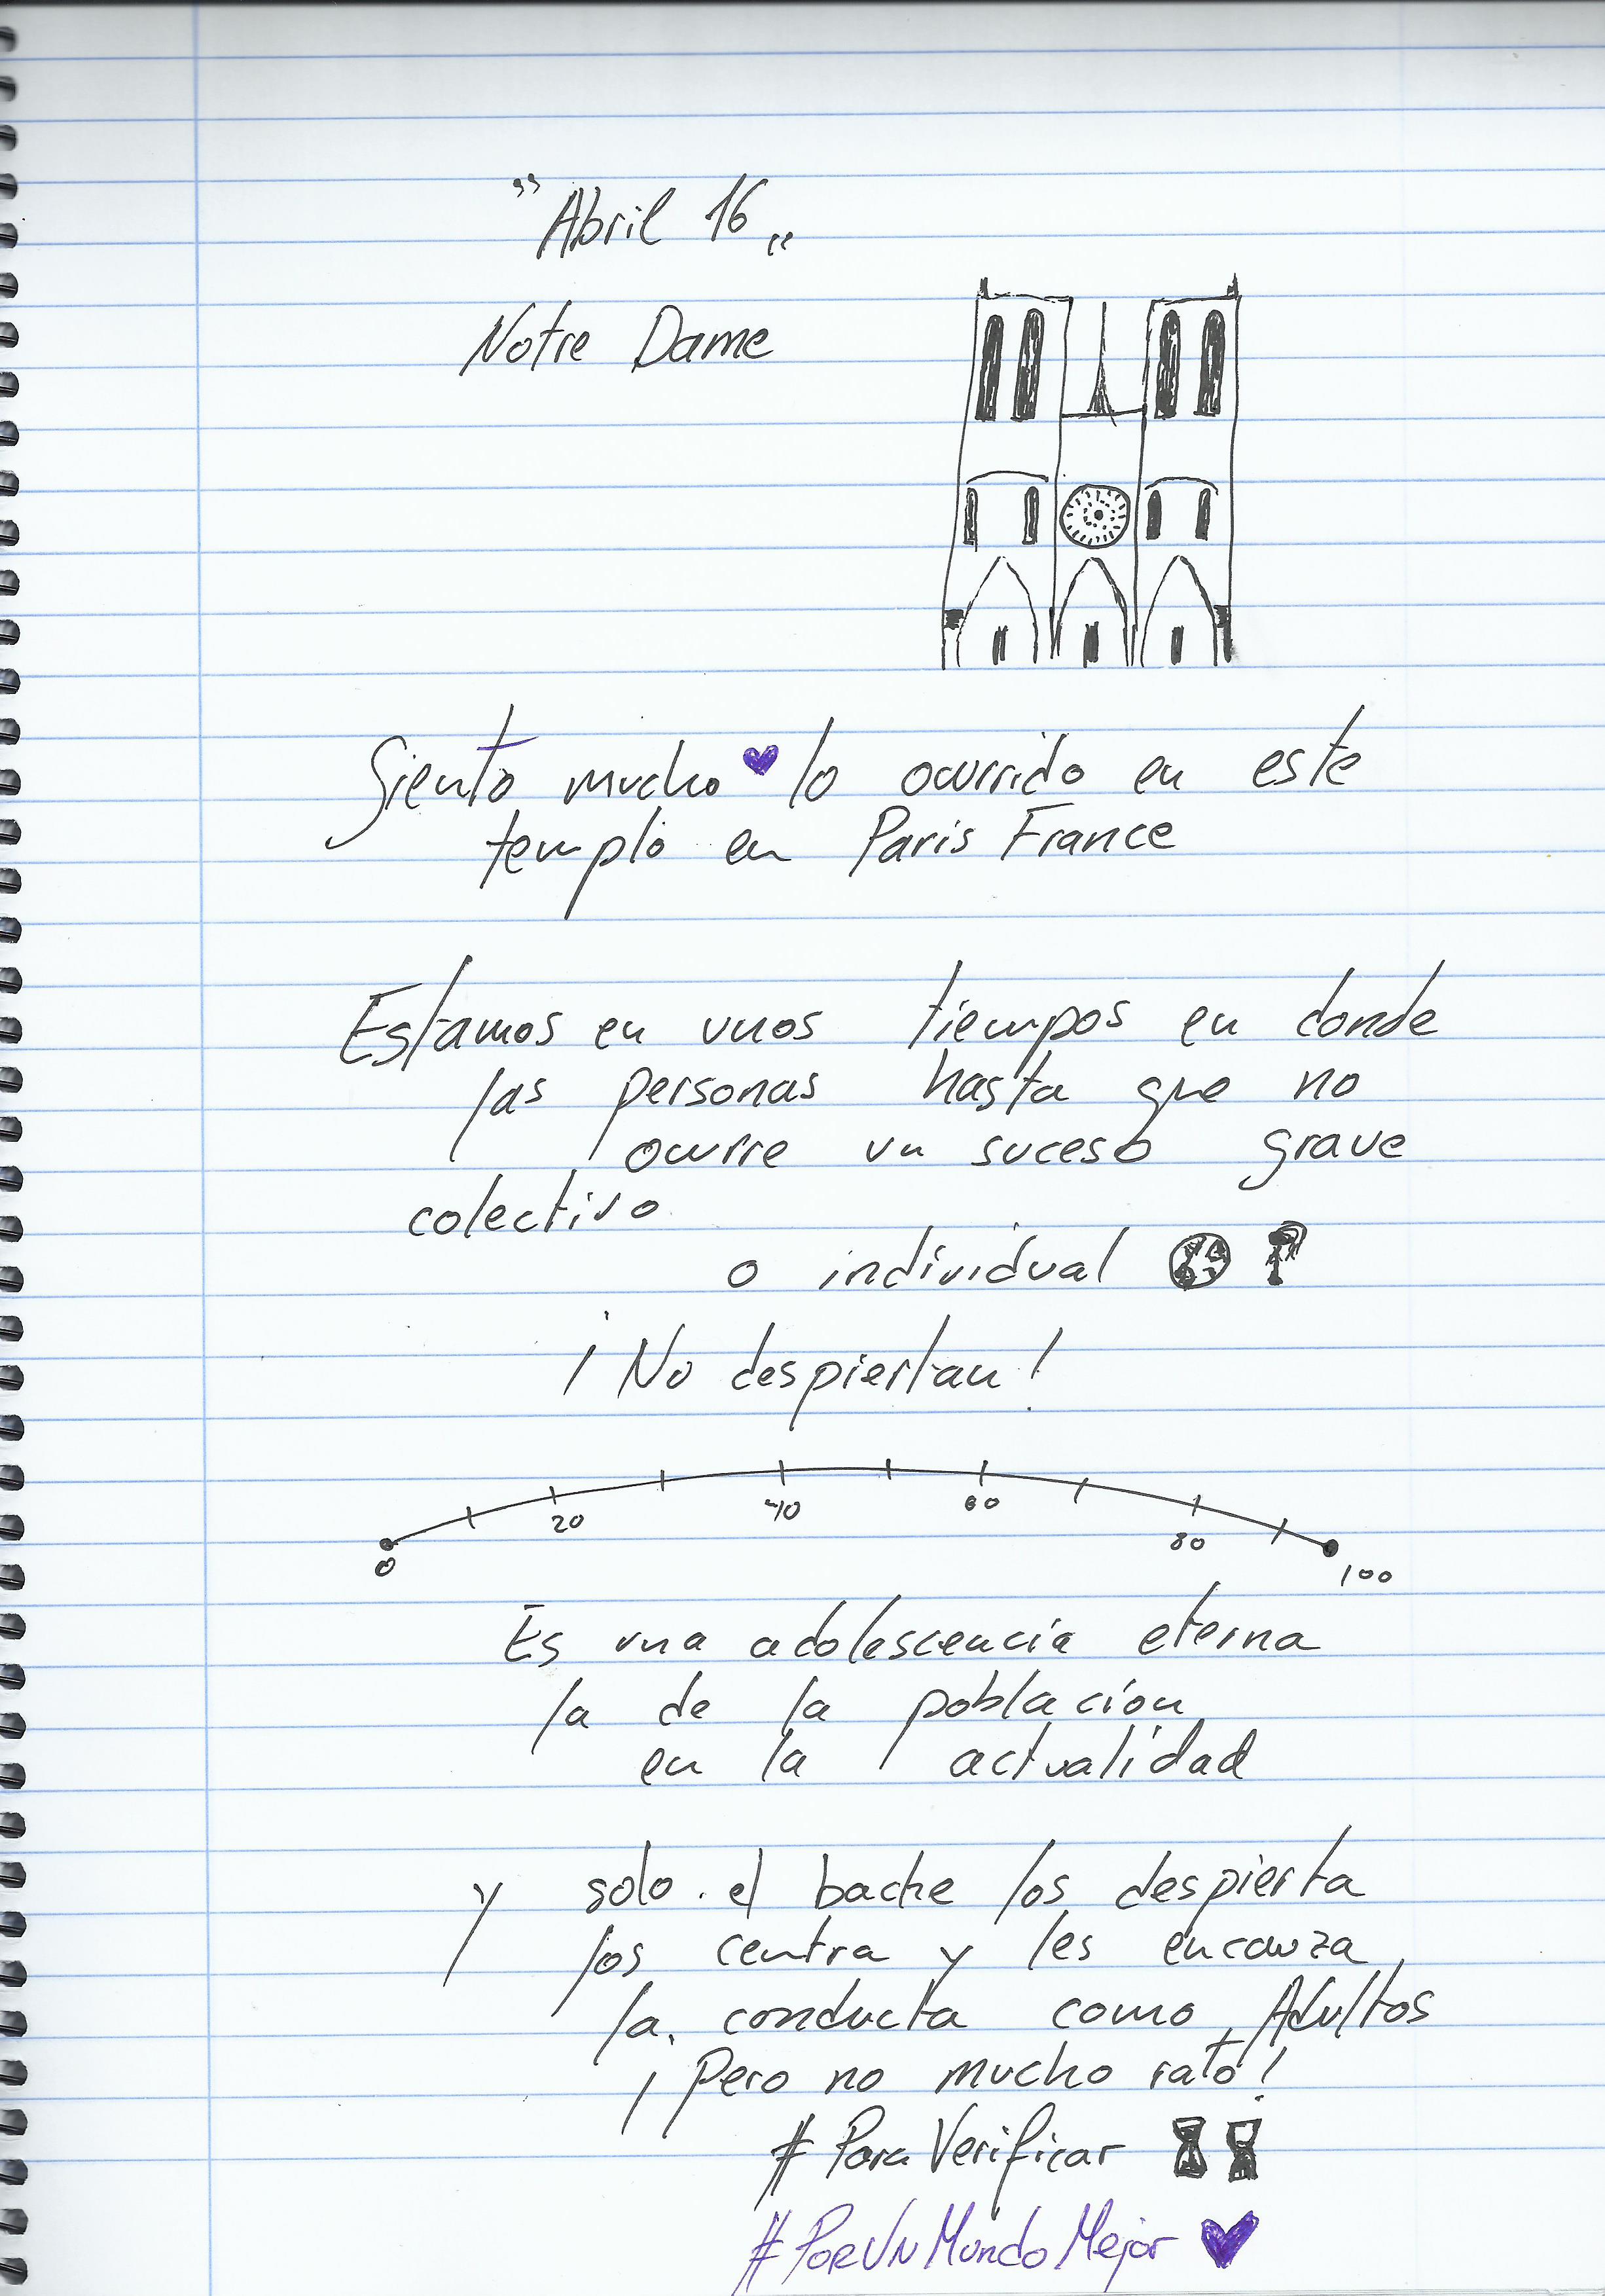 "Abril 16"
Notre Dame
Siento mucho lo ocurrido en este
templo en Paris France
Estamos en unos tiempos en donde
las personas hasta que no
ocurre un suceso grave
colectivo
o individual
¡No despiertan!
0 20 40 60 80 100
Es una adolescencia eterna
la de la población
en la actualidad
y solo el bache los despierta
los centra y les encauza
la conducta como Adultos
¡Pero no mucho rato!
#ParaVerificar
#PorUnMundoMejor